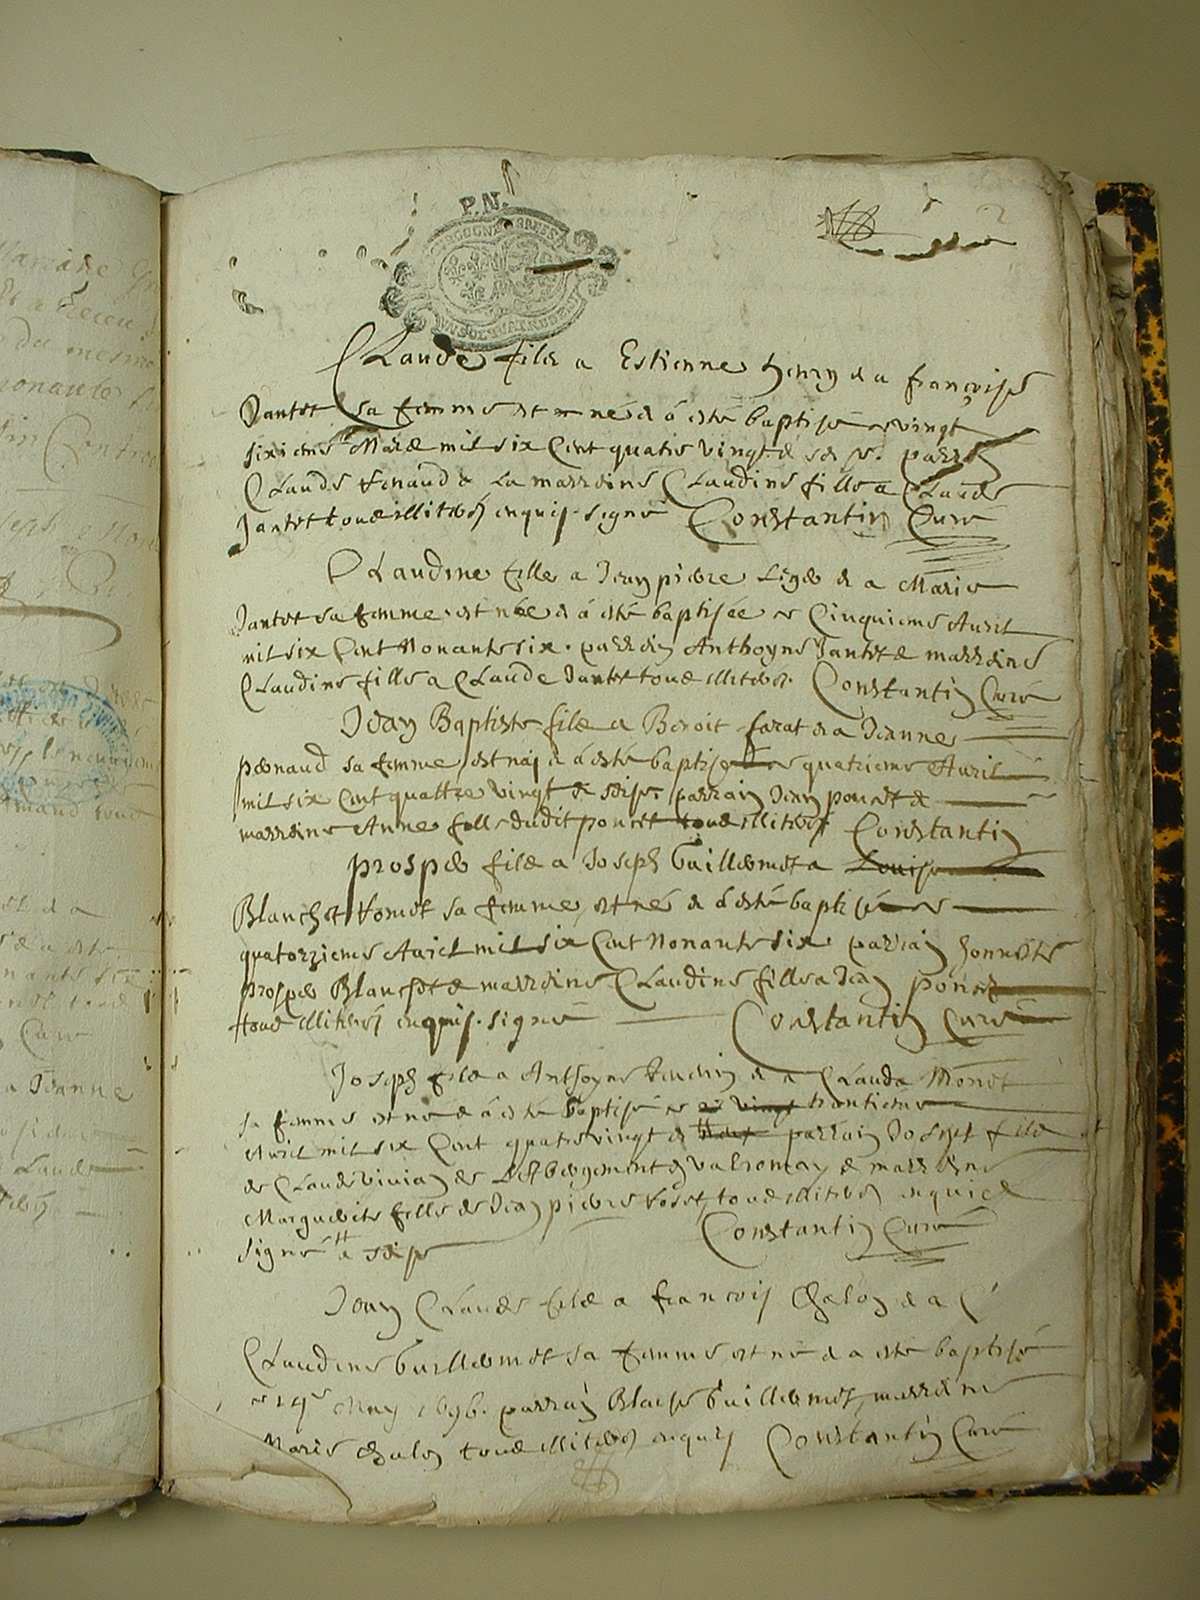 P.N.
Claude filz a Estienne henry & a françoise
Jantet sa femme est né & a esté baptisé ce vingt
sixieme Mars mil six Cent quatre vingt & seize. parrain
Claude & La marreine Claudine fille a Claude
Jantet tous illiterez enquis. signé Constantin Curé
Claudine fille a Jean pierre & a Marie
Jantet sa femme est née & a esté baptisée ce Cinquieme Avril
mil six Cent Nonante six. parrain Anthoyne Jantet & marreine
Claudine fille a Claude Jantet tous illiterez. Constantin Curé
Jean Baptiste filz a Benoit & a Jeanne
penaud sa femme est nai & a esté baptisé ce quatrieme Avril
mil six Cent quattre vingt & seize parrain Jean poncet &
marreine Anne fille dudit poncet tous illiterez Constantin
prosper filz a Joseph Guillermet a Louise
Blanchet sa femme est né & a esté baptisé ce
quatorzieme Avril mil six Cent Nonante six parrain honneste
prosper Blanchet & marreine Claudine fille a Jean poncet
tous illiterez enquis. signé Constantin Curé
Joseph filz a Anthoyne & a Clauda Monet
sa femme est né & a esté baptisé ce vingt trentieme
Avril mil six Cent quatre vingt & parrain Joseph filz
de Claude vivian de en valromay & marreine
Marguerite fille de Jean pierre tous illiterez enquis
signé seize Constantin Curé
Jean Claude filz a françois Chalon & a C
Claudine Guillermet sa femme est né & a esté baptisé
ce 14e May 1696. parrain Blaise Guillermet, marreine
Marie Chalon tous illiterez enquis Constantin Curé